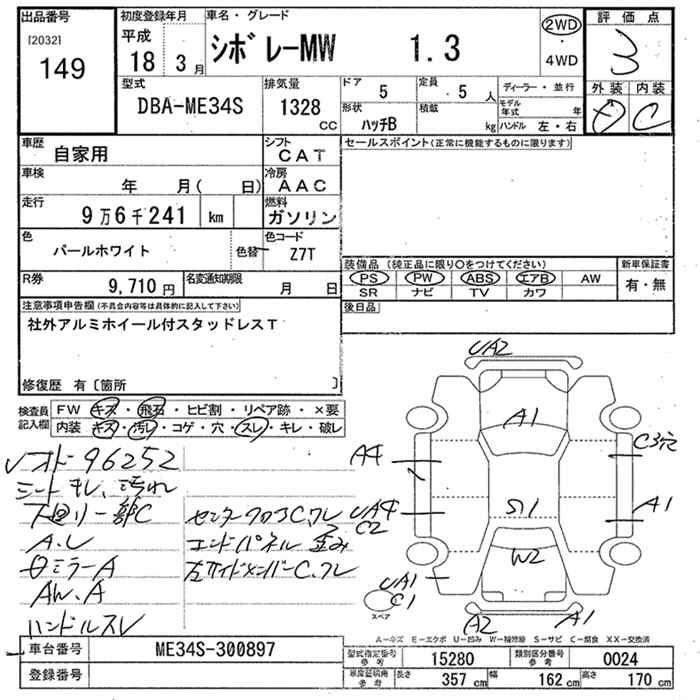 出品番号
[2032]
149
初度登録年月
平成
18 3月
車名・グレード
シボレーMW 1.3
2WD
・
4WD
評価点
3
外装 内装
D C
型式
DBA-ME34S
排気量
1328
CC
ドア
5
定員
5人
ディーラー・並行
モデル年式 年
形状
ハッチB
積載
kg
ハンドル 左・右
車歴
自家用
シフト
CAT
セールスポイント(正常に機能するものに限ります)
車検
年 月( 日)
冷房
AAC
走行
9万6千241 km
燃料
ガソリン
色
パールホワイト
色替
色コード
Z7T
装備品 (純正品に限り○をつけてください)
PS PW ABS エアB AW
SR ナビ TV カワ
新車保証書
有・無
R券
9,710円
名変通知期限
月 日
後日品
注意事項申告欄(不具合内容等は具体的に記入して下さい)
社外アルミホイール付スタッドレスT
修復歴 有〔箇所 〕
検査員
記入欄
FW キズ・飛石・ヒビ割・リペア跡・×要
内装 キズ・汚レ・コゲ・穴・スレ・キレ・破レ
オドー96252
シートキレ、汚れ
下回リ一部C
A.U
ミラーA
AW.A
ハンドルスレ
センターフロアC.フレ
エンドパネル 歪み
左サイドメンバーC.フレ
UA2
A1
A4
C3穴
UA4
C2
S1
A1
W2
UA1
C1
スペア
A2
A1
A-キズ E-エクボ U-凹み W-補修跡 S-サビ C-腐食 XX-交換済
車台番号
ME34S-300897
登録番号
型式指定番号
参考
15280
類別区分番号
参考
0024
車庫証明用
参考
長さ
357 cm
幅
162 cm
高さ
170 cm